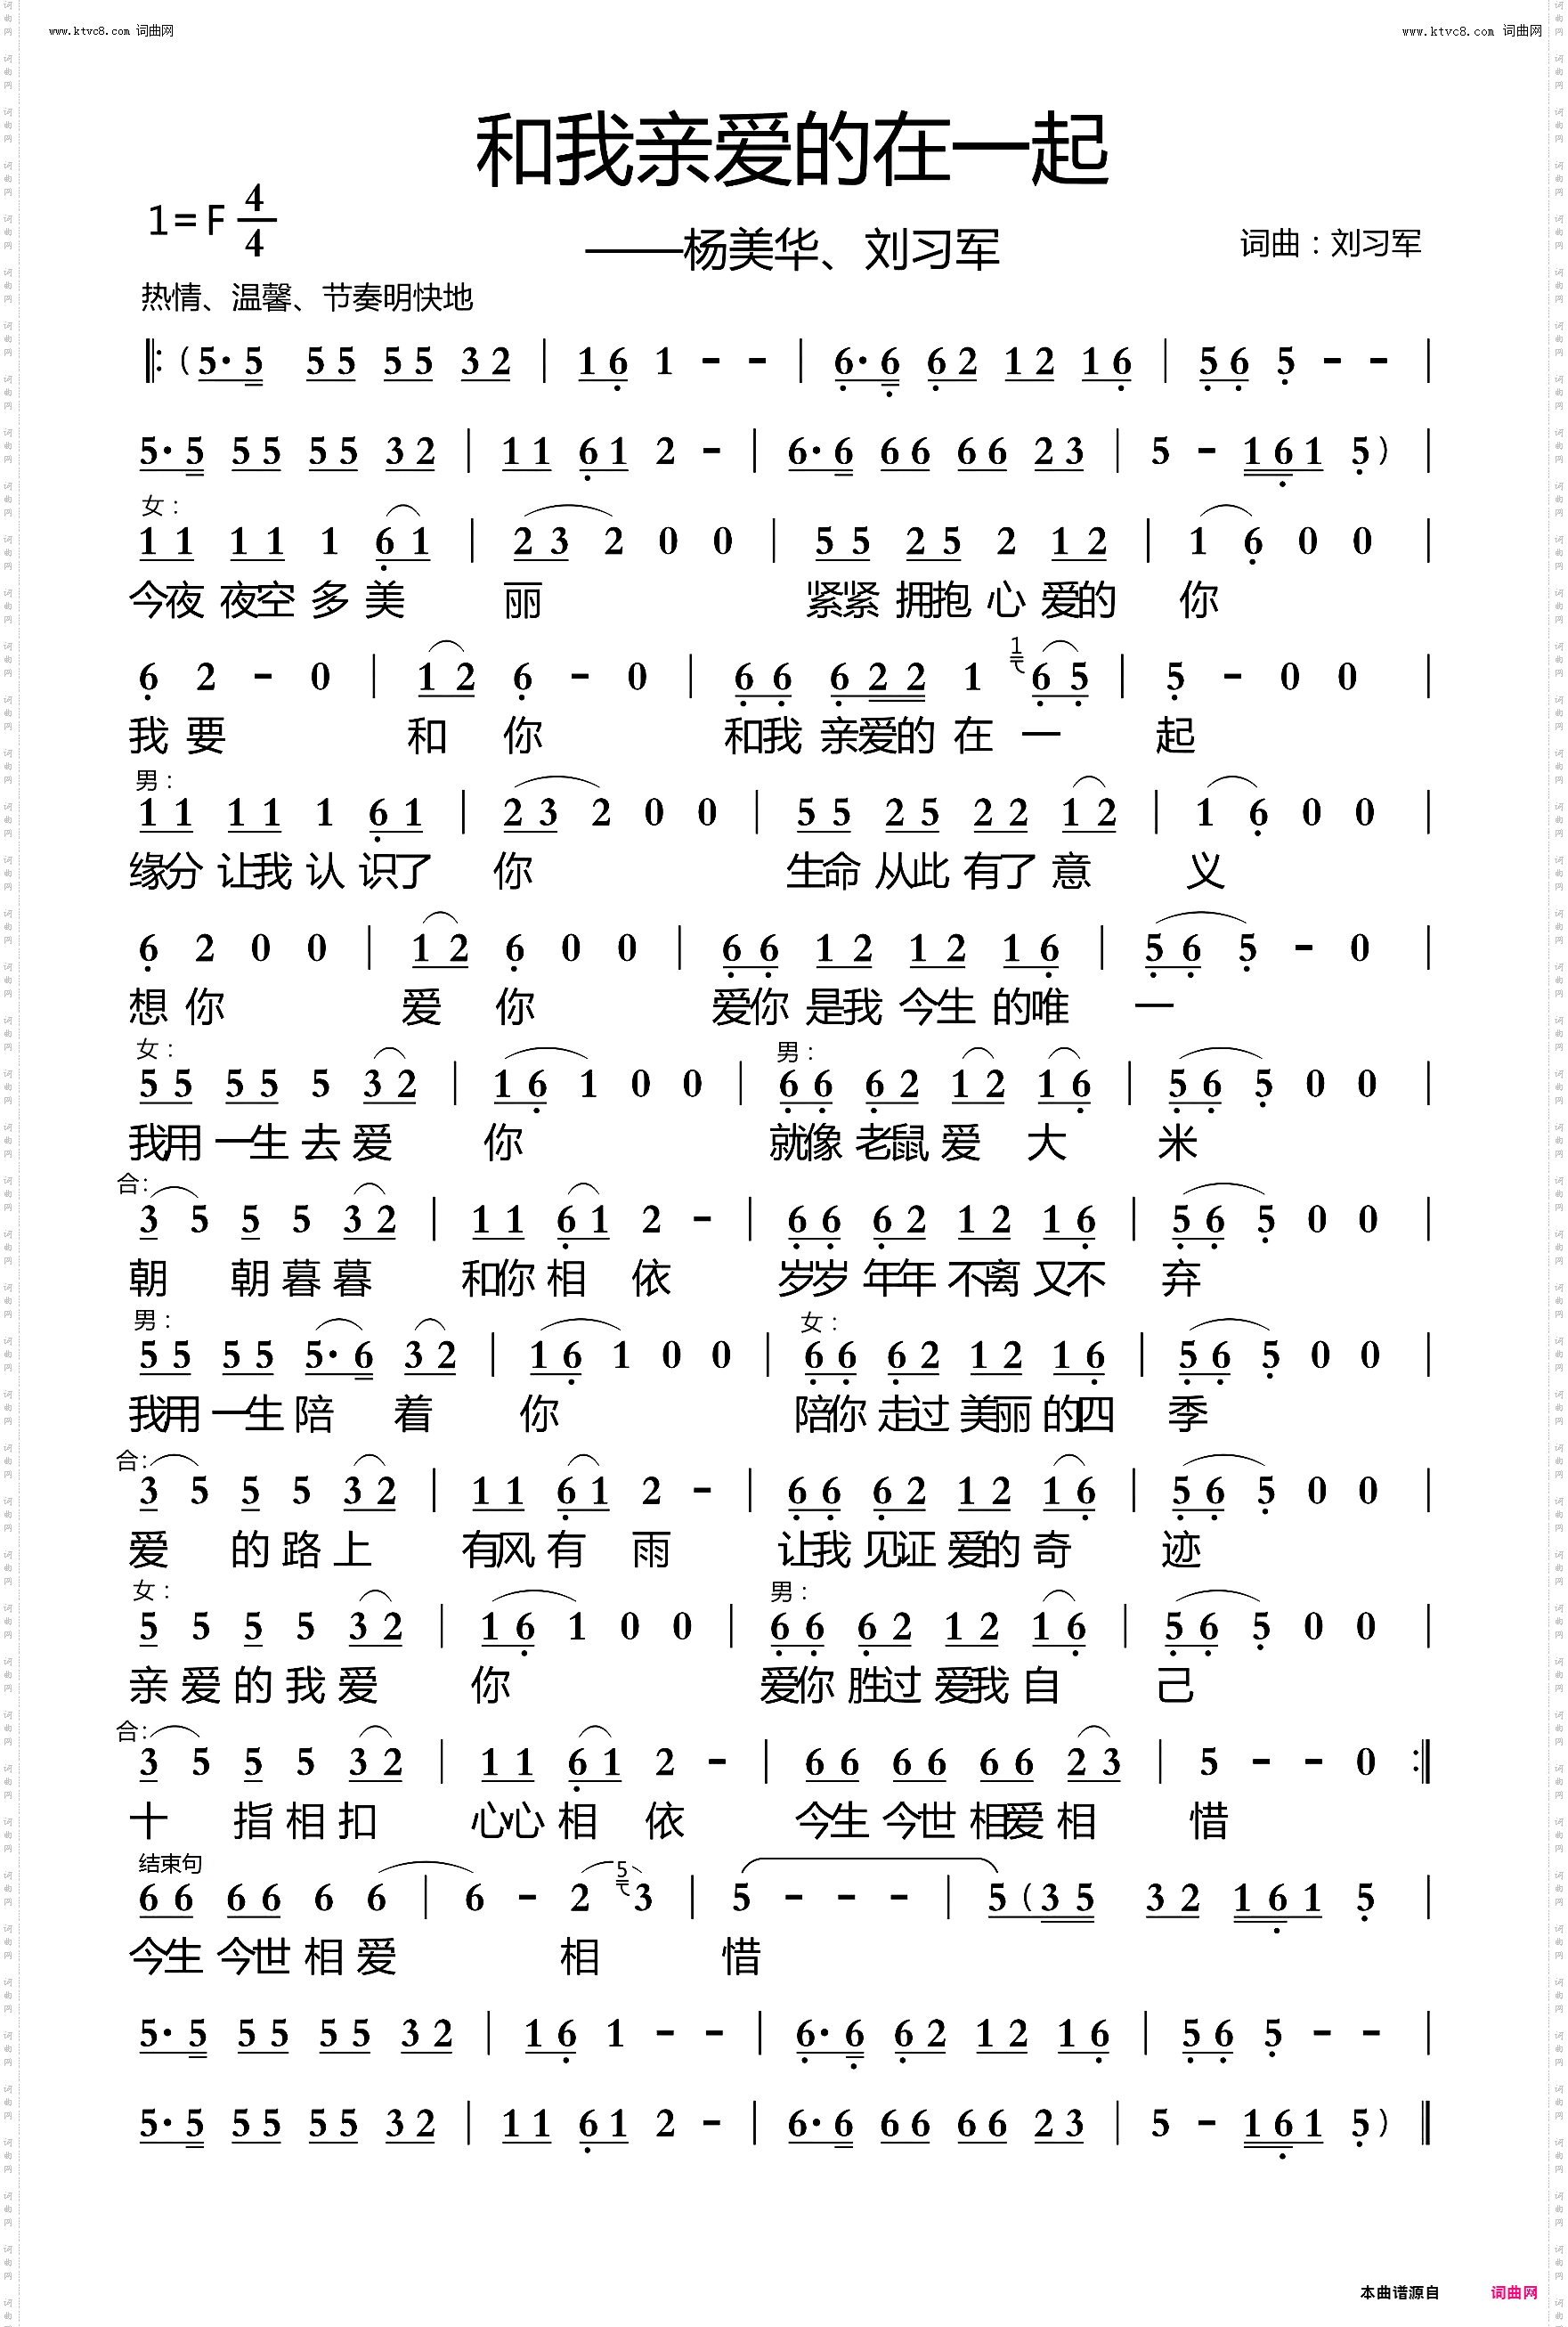 www.ktvc8.com 词曲网 www.ktvc8.com 词曲网
和我亲爱的在一起
1=F 4/4
——杨美华、刘习军 词曲：刘习军
热情、温馨、节奏明快地
‖: (5· 5 5 5 5 5 3 2 | 1 6̣ 1 - - | 6̣· 6̣ 6̣ 2 1 2 1 6̣ | 5̣ 6̣ 5̣ - - |
5· 5 5 5 5 5 3 2 | 1 1 6̣ 1 2 - | 6· 6 6 6 6 6 2 3 | 5 - 1 6̣ 1 5̣ ) |
女：
1 1 1 1 1 6̣ 1 | 2 3 2 0 0 | 5 5 2 5 2 1 2 | 1 6̣ 0 0 |
今夜 夜空 多 美 丽 紧紧 拥抱 心 爱的 你
6̣ 2 - 0 | 1 2 6̣ - 0 | 6̣ 6̣ 6̣ 2 2 1 1 6̣ 5̣ | 5̣ - 0 0 |
我 要 和 你 和我 亲爱的 在 一 起
男：
1 1 1 1 1 6̣ 1 | 2 3 2 0 0 | 5 5 2 5 2 2 1 2 | 1 6̣ 0 0 |
缘分 让我 认 识了 你 生命 从此 有了 意 义
6̣ 2 0 0 | 1 2 6̣ 0 0 | 6̣ 6̣ 1 2 1 2 1 6̣ | 5̣ 6̣ 5̣ - 0 |
想 你 爱 你 爱你 是我 今生 的唯 一
女： 男：
5 5 5 5 5 3 2 | 1 6̣ 1 0 0 | 6̣ 6̣ 6̣ 2 1 2 1 6̣ | 5̣ 6̣ 5̣ 0 0 |
我用 一生 去 爱 你 就像 老鼠 爱 大 米
合：
3 5 5 5 3 2 | 1 1 6̣ 1 2 - | 6̣ 6̣ 6̣ 2 1 2 1 6̣ | 5̣ 6̣ 5̣ 0 0 |
朝 朝 暮 暮 和你 相 依 岁岁 年年 不离 又不 弃
男： 女：
5 5 5 5 5· 6 3 2 | 1 6̣ 1 0 0 | 6̣ 6̣ 6̣ 2 1 2 1 6̣ | 5̣ 6̣ 5̣ 0 0 |
我用 一生 陪 着 你 陪你 走过 美丽 的四 季
合：
3 5 5 5 3 2 | 1 1 6̣ 1 2 - | 6̣ 6̣ 6̣ 2 1 2 1 6̣ | 5̣ 6̣ 5̣ 0 0 |
爱 的 路 上 有风 有 雨 让我 见证 爱的 奇 迹
女： 男：
5 5 5 5 3 2 | 1 6̣ 1 0 0 | 6̣ 6̣ 6̣ 2 1 2 1 6̣ | 5̣ 6̣ 5̣ 0 0 |
亲 爱 的 我 爱 你 爱你 胜过 爱我 自 己
合：
3 5 5 5 3 2 | 1 1 6̣ 1 2 - | 6 6 6 6 6 6 2 3 | 5 - - 0 :‖
十 指 相 扣 心心 相 依 今生 今世 相爱 相 惜
结束句
6 6 6 6 6 6 | 6 - 2 5 3 | 5 - - - | 5 (3 5 3 2 1 6̣ 1 5̣ |
今生 今世 相 爱 相 惜
5· 5 5 5 5 5 3 2 | 1 6̣ 1 - - | 6̣· 6̣ 6̣ 2 1 2 1 6̣ | 5̣ 6̣ 5̣ - - |
5· 5 5 5 5 5 3 2 | 1 1 6̣ 1 2 - | 6· 6 6 6 6 6 2 3 | 5 - 1 6̣ 1 5̣ ) ‖
本曲谱源自 词曲网